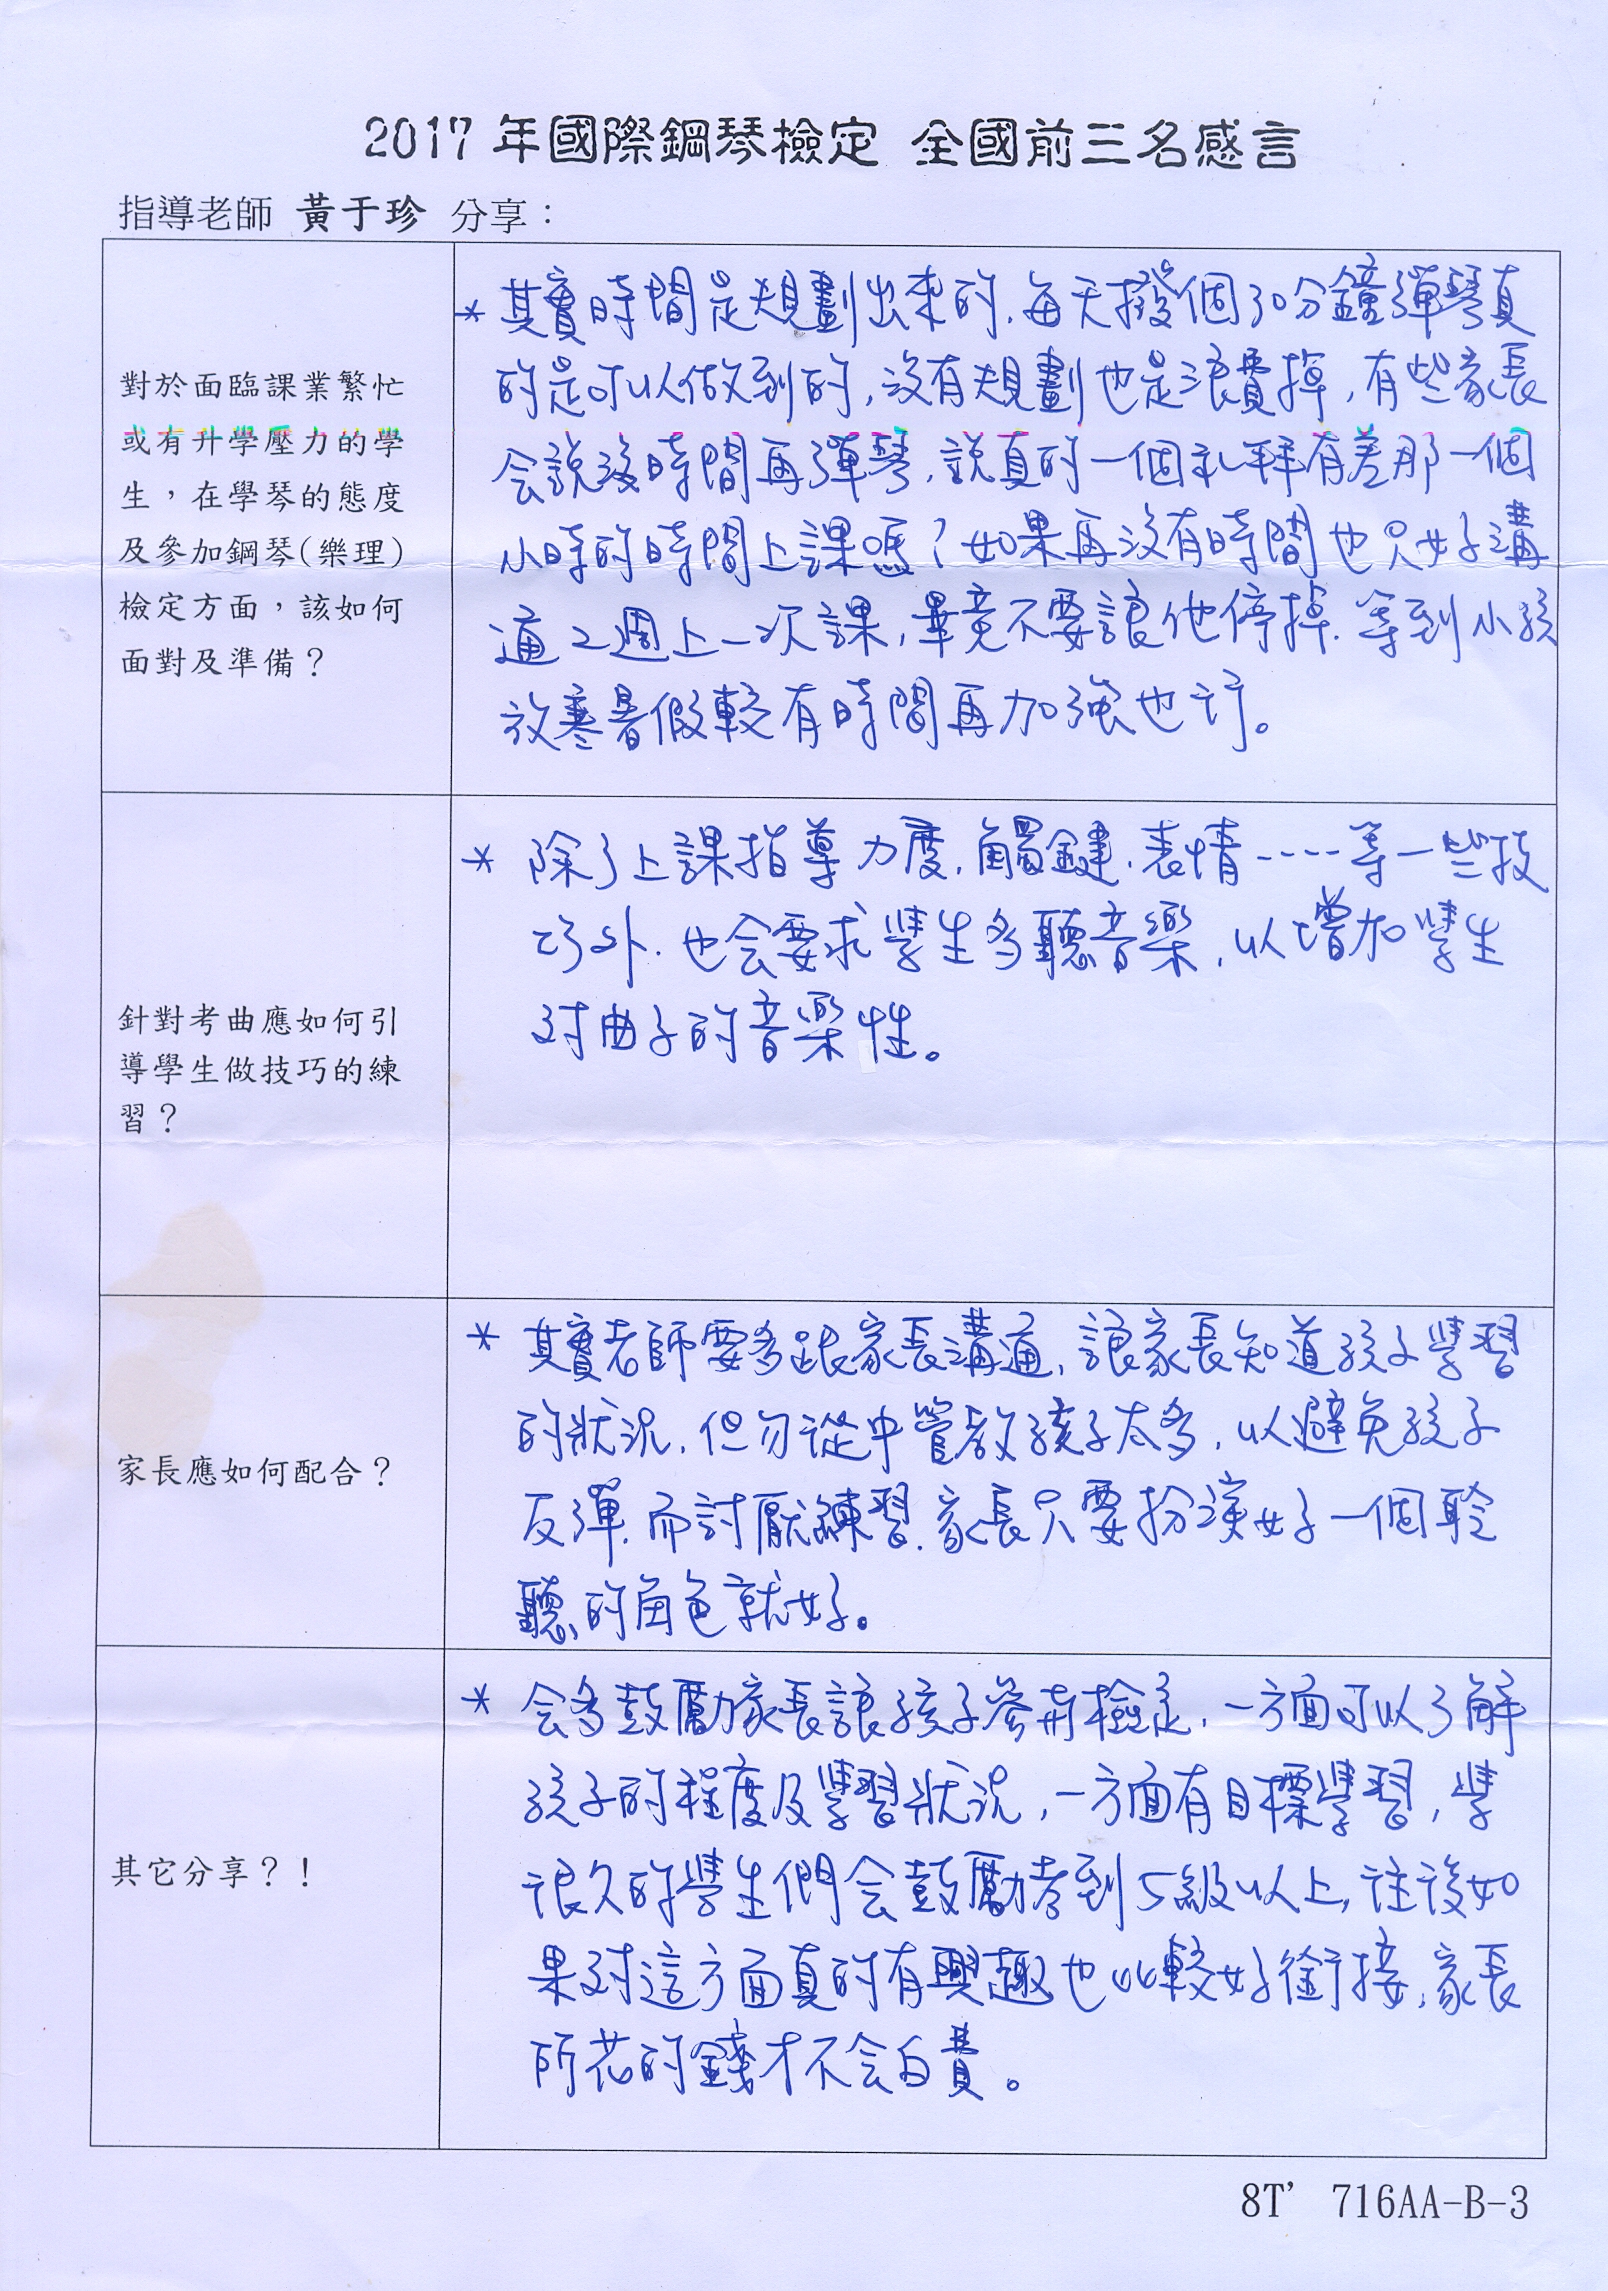 2017年國際鋼琴檢定 全國前三名感言
指導老師 黃于珍 分享：
對於面臨課業繁忙
或有升學壓力的學
生，在學琴的態度
及參加鋼琴(樂理)
檢定方面，該如何
面對及準備？
* 其實時間是規劃出來的,每天撥個30分鐘彈琴真
的是可以做到的,沒有規劃也是浪費掉,有些家長
会說沒時間再彈琴,說真的一個礼拜有差那一個
小時的時間上課嗎?如果再沒有時間也只好溝
通2週上一次課,畢竟不要讓他停掉.等到小孩
放寒暑假較有時間再加強也行。
針對考曲應如何引
導學生做技巧的練
習？
* 除了上課指導力度,觸鍵,表情----等一些技
巧外.也会要求學生多聽音樂,以增加學生
对曲子的音樂性。
家長應如何配合？
* 其實老師要多跟家長溝通,讓家長知道孩子學習
的狀況,但勿從中管教孩子太多,以避免孩子
反彈,而討厭練習.家長只要扮演好一個聆
聽的角色就好。
其它分享？！
* 会多鼓勵家長讓孩子參加檢定,一方面可以了解
孩子的程度及學習狀況,一方面有目標學習,學
很久的學生們会鼓勵考到5級以上,往後如
果对這方面真的有興趣也比較好銜接,家長
所花的錢才不会白費。
8T' 716AA-B-3